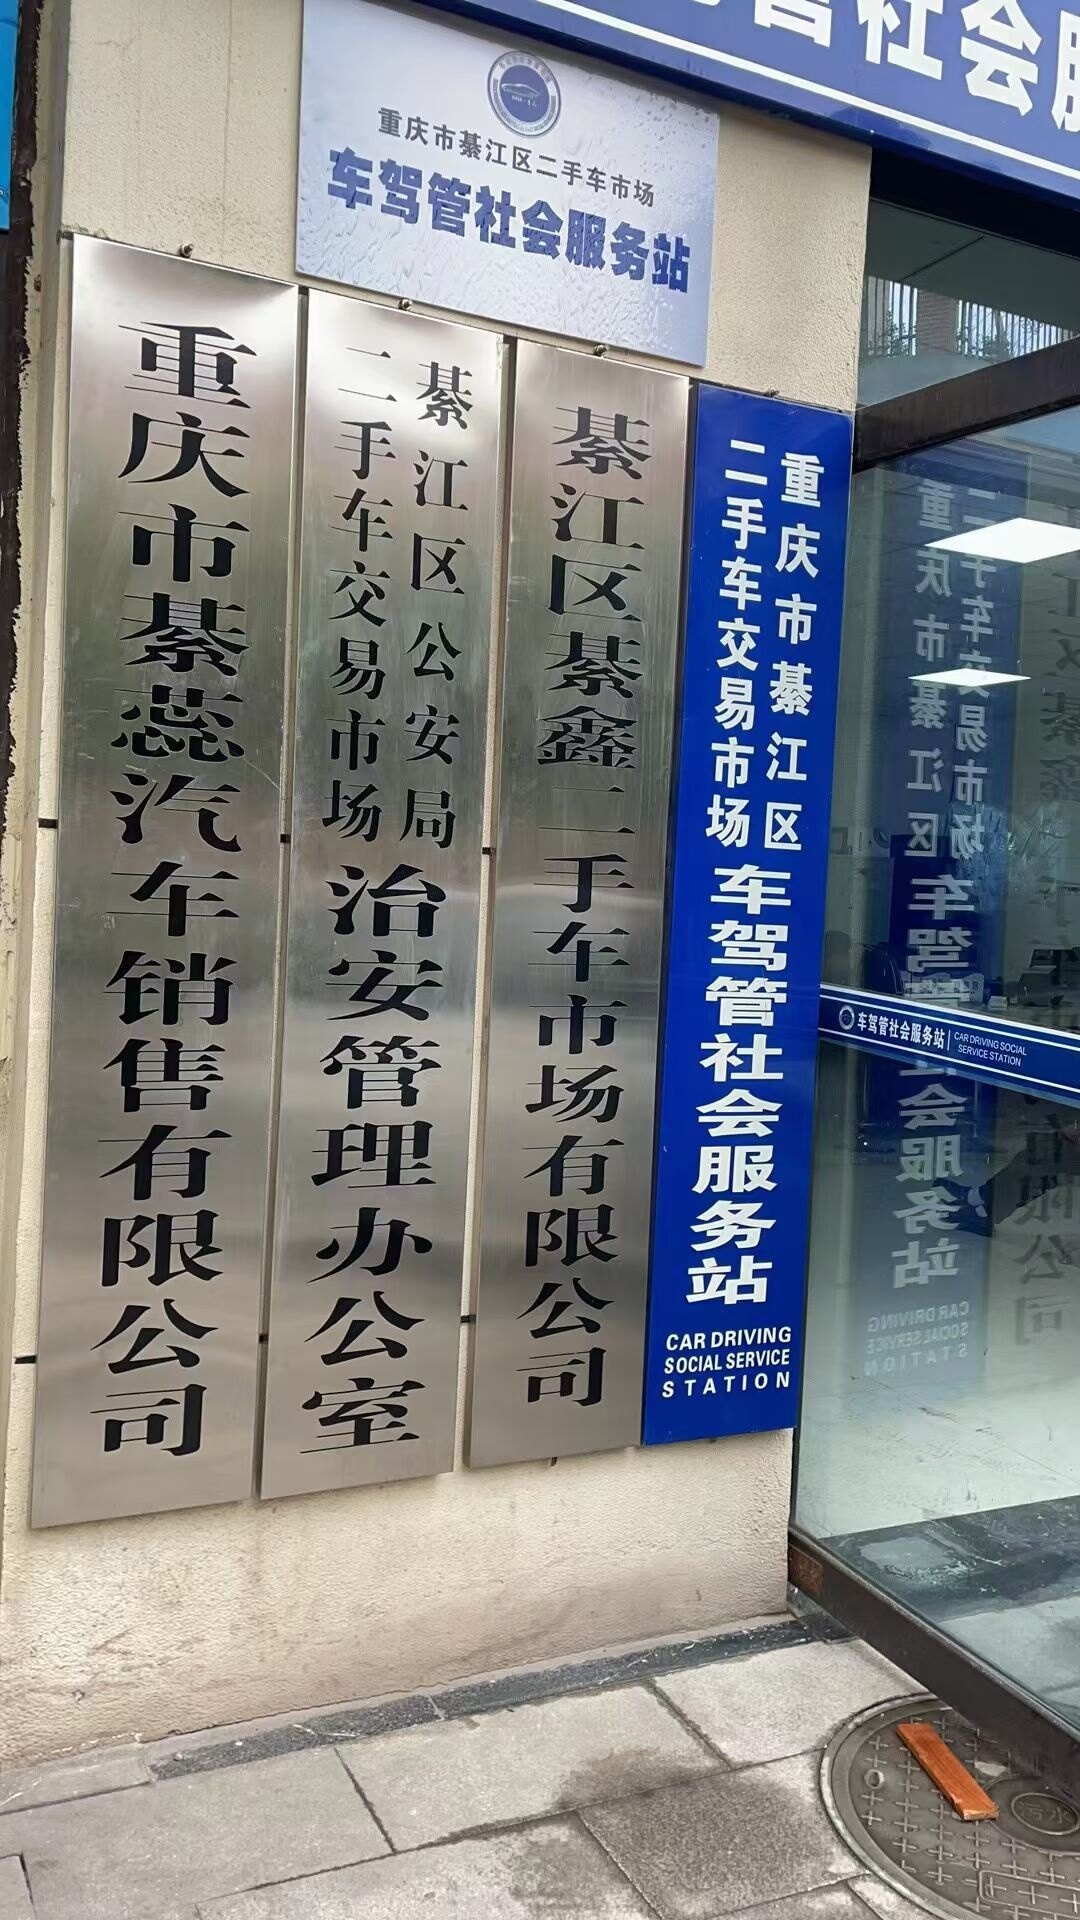 管社会服
重庆市綦江区二手车市场
车驾管社会服务站
重庆市綦蕊汽车销售有限公司
綦江区公安局
二手车交易市场
治安管理办公室
綦江区綦鑫二手车市场有限公司
重庆市綦江区
二手车交易市场
车驾管社会服务站
CAR DRIVING
SOCIAL SERVICE
STATION
车驾管社会服务站
CAR DRIVING SOCIAL
SERVICE STATION
污水